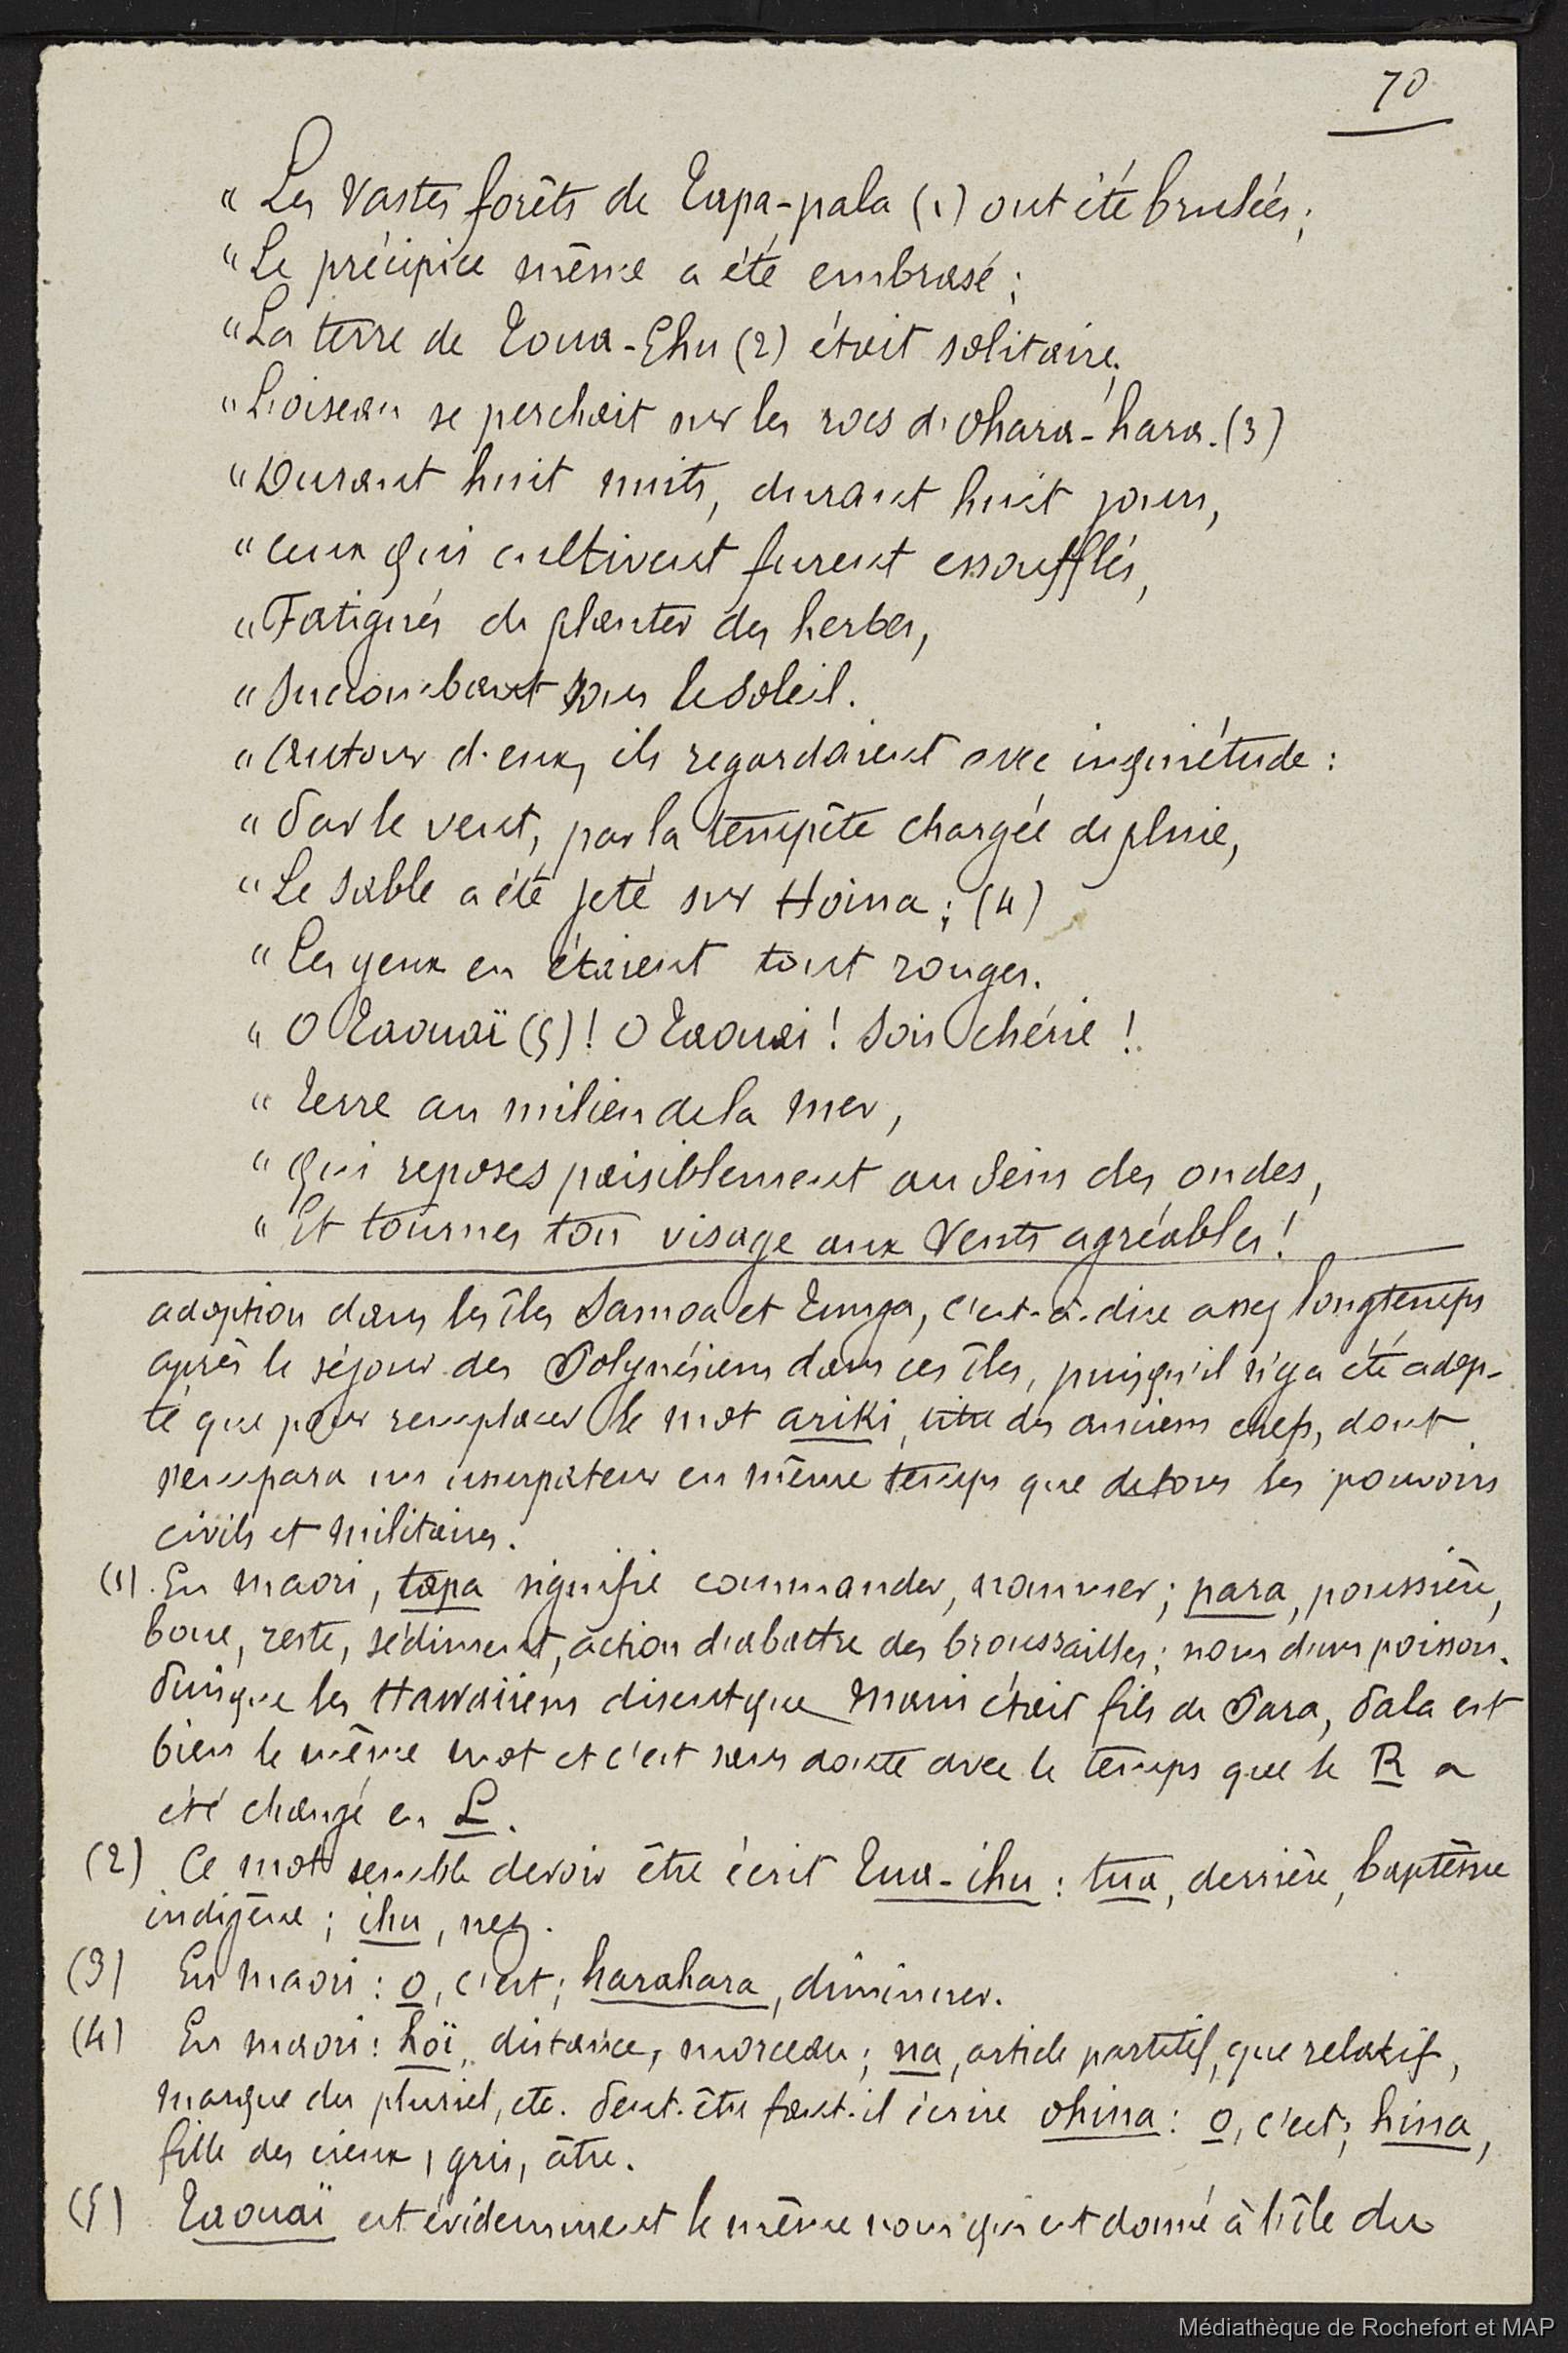 70
" Les vastes forêts de Tapa-pala (1) ont été brulées;
" Le précipice même a été embrasé;
" La terre de Toua-Ehu (2) était solitaire.
" L'oiseau se perchait sur les rocs d'Ohara-hara. (3)
" Durant huit nuits, durant huit jours,
" ceux qui cultivent furent essoufflés,
" Fatigués de planter des herbes,
" Succombant sous le soleil.
" Autour d'eux, ils regardaient avec inquiétude:
" Par le vent, par la tempête chargée de pluie,
" Le sable a été jeté sur Hoina; (4)
" Les yeux en étaient tout rouges.
" O Taouaï (5)! O Taouai! Sois chérie!
" Terre au milieu de la mer,
" Qui reposes paisiblement au sein des ondes,
" Et tournes ton visage aux vents agréables!
adoption dans les îles Samoa et Tunga, c'est-à-dire assez longtemps
après le séjour des Polynésiens dans ces îles, puisqu'il n'y a été adop-
té que pour remplacer le mot ariki, titre des anciens chefs, dont
s'empara un usurpateur en même temps que de tous les pouvoirs
civils et militaires.
(1) En maori, tapa signifie commander, nommer; para, poussière,
boue, reste, sédiment, action d'abattre des broussailles; nom d'un poisson.
Puisque les Hawaiiens disent que Maui était fils de Para, Pala est
bien le même mot et c'est sans doute avec le temps que le R a
été changé en L.
(2) Ce mot semble devoir être écrit Tua-ihu: tua, derrière, baptême
indigène; ihu, nez.
(3) En maori: o, c'est; harahara, diminuer.
(4) En maori: hoï, distance, morceau; na, article partitif, que relatif,
marque du pluriel, etc. Peut-être faut-il écrire ohina: o, c'est; hina,
fille des cieux, gris, âtre.
(5) Taouaï est évidemment le même nom qui est donné à l'île du
Médiathèque de Rochefort et MAP